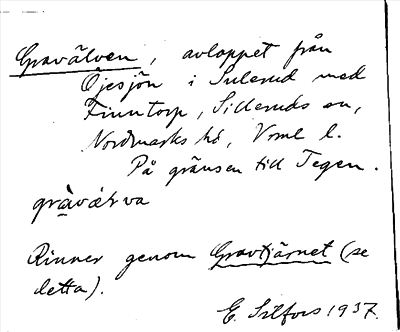 Gravälven, avloppet från
Öjesjön i Sulerud med
Finntorp, Silleruds sn,
Nordmarks hd, Vrml l.
På gränsen till Tegen.
gràvæ̀rva
Rinner genom Gravtjärnet (se
detta).
E. Silfors 1937.